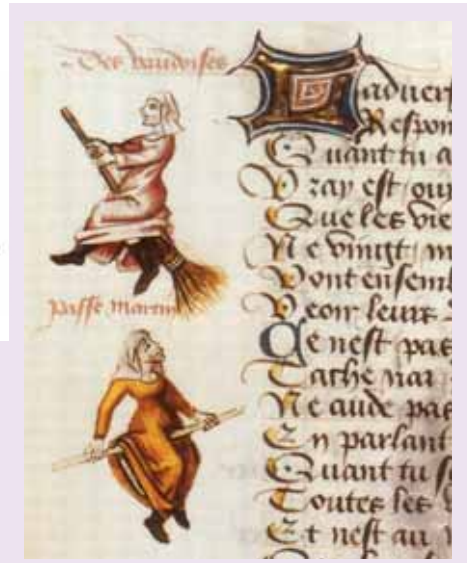 Des vaudoises
passe martin
Laduers
Respon
Quant tu a
Vray est / oui
Que les vie
Ne vingt / m
Vont ensem
Veoir leurs
Ce nest pas
Tache nar
Ne cuide pas
En parlant
Quant tu s
Toutes les v
Et nest au v